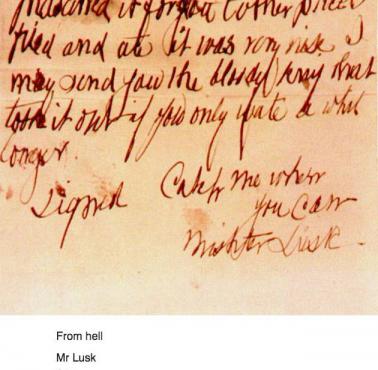 prasarved it for you tother piece I
fried and ate it was very nise I
may send you the bloody knif that
took it out if you only wate a whil
longer.
signed Catch me when
you Can
Mishter Lusk -
From hell
Mr Lusk